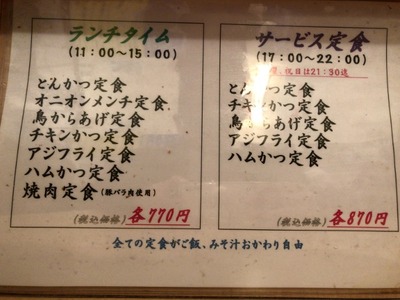 ランチタイム
(11:00〜15:00)
とんかつ定食
オニオンメンチ定食
鳥からあげ定食
チキンかつ定食
アジフライ定食
ハムかつ定食
焼肉定食(豚バラ肉使用)
(税込価格) 各770円
サービス定食
(17:00〜22:00)
祝日は21:30迄
とんかつ定食
チキンかつ定食
鳥からあげ定食
アジフライ定食
ハムかつ定食
(税込価格) 各870円
全ての定食がご飯、みそ汁おかわり自由